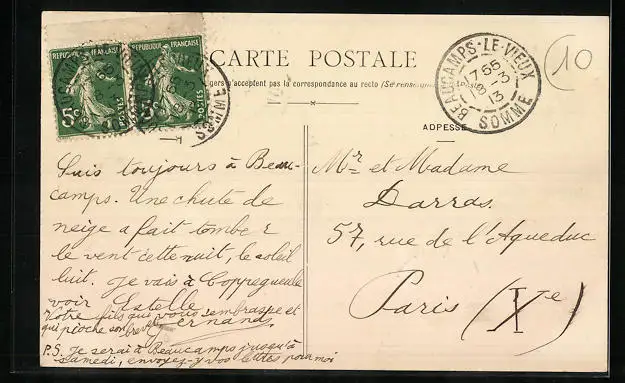 REPUBLIQUE FRANÇAISE REPUBLIQUE FRANÇAISE
5c 5c
POSTES POSTES
CARTE POSTALE
gers n'acceptent pas la correspondance au recto (Se renseigner
BEAUCAMPS-LE-VIEUX
17 65
8-3
13
SOMME
10
ADRESSE
Suis toujours à Beau-
camps. Une chute de
neige a fait tomber
le vent cette nuit, le soleil
luit. Je vais à Coppegueule
voir Estelle
Votre fils qui vous embrasse et
qui pioche son brevet Fernand.
P.S. Je serai à Beaucamps jusqu'à
samedi, envoyez-y vos lettres pour moi
Mr et Madame
Darras.
57, rue de l'Aqueduc
Paris (Xe)